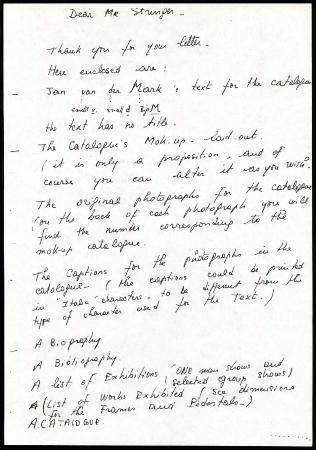 Dear Mr Stringer -
Thank you for your letter.
Here enclosed are :
Jan van der Mark's text for the catalogue
small v. small d Big M
the text has no title.
The Catalogue's Mok-up - laid out.
(it is only a proposition, and of
course you can alter it as you wish)
The original photographs for the catalogue
(on the back of each photograph you will
find the number corresponding to the
mok-up catalogue.
The Captions for the photographs in the
catalogue - (the captions could be printed
in "Italic" characters - to be different from the
type of character used for the Text.)
A Biography
A Bibliography.
A list of Exhibitions (ONE man shows and
selected group shows)
A (List of Works Exhibited (see dimensions
for the Frames and Pedestals -)
A CATALOGUE.